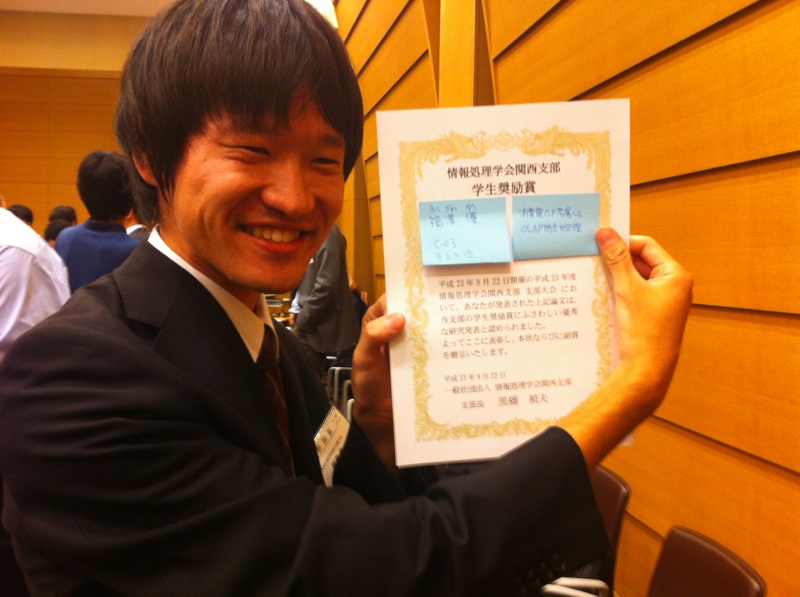 情報処理学会関西支部
学生奨励賞
福澤 優
C-03
消費電力を考慮した
OLAP問合せ処理
平成23年9月22日開催の平成23年度
情報処理学会関西支部 支部大会 にお
いて、あなたが発表された上記論文は、
当支部の学生奨励賞にふさわしい優秀
な研究発表と認められました。
よってここに表彰し、本状ならびに副賞
を贈呈いたします。
平成23年9月22日
一般社団法人 情報処理学会関西支部
支部長 黒橋 禎夫